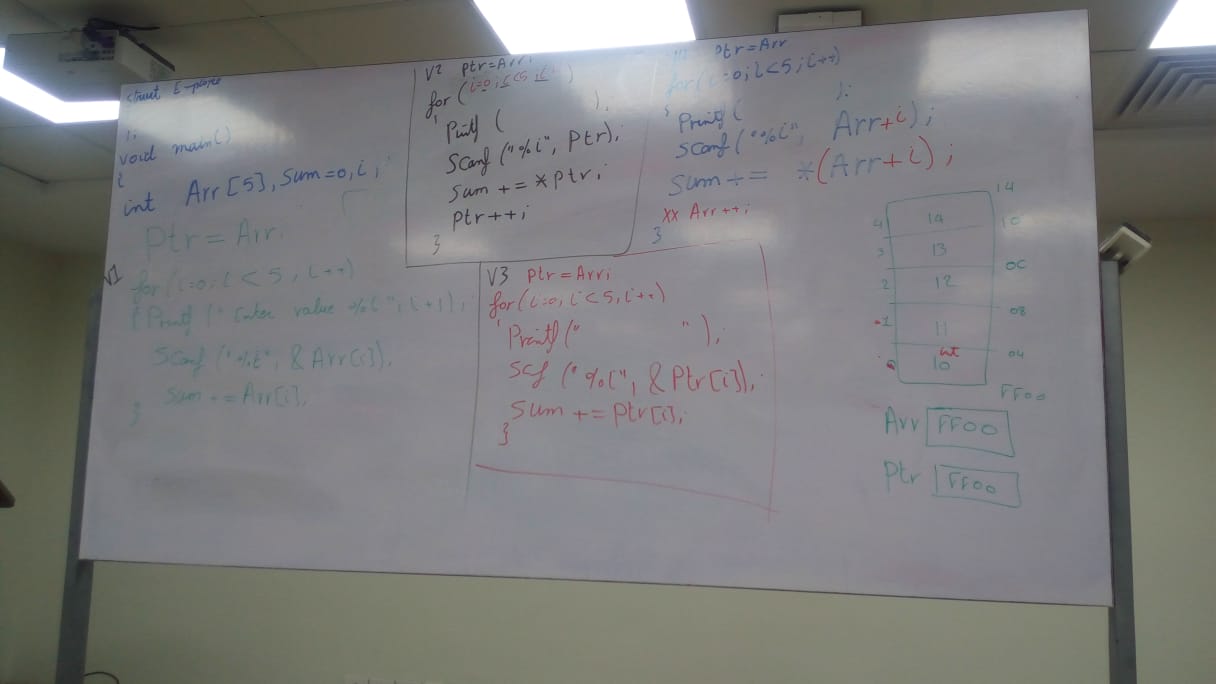 struct E-
};
void main()
{
int Arr[5], Sum=0, i;
Ptr = Arr;
V1
for(i=0; i<5, i++)
{ Printf (" Enter value %i", i+1);
Scanf ("%i", &Arr[i]),
sum += Arr[i],
}
V2 Ptr=Arr;
for (i=0; i<5, i++)
Printf ( ),
Scanf ("%i", Ptr);
Sum += *Ptr;
Ptr++;
}
V3 Ptr=Arr;
for(i=0, i<5, i++)
Printf (" "),
Scf ("%i", &Ptr[i]),
Sum += Ptr[i];
}
Ptr=Arr
for(i=0; i<5; i++)
{ Printf ( );
Scanf ("%i", Arr+i);
Sum += *(Arr+i);
xx Arr++;
}
14
4 14 10
3 13 0C
2 12 08
1 11 04
0 int 10 FF00
Arr FF00
Ptr FF00